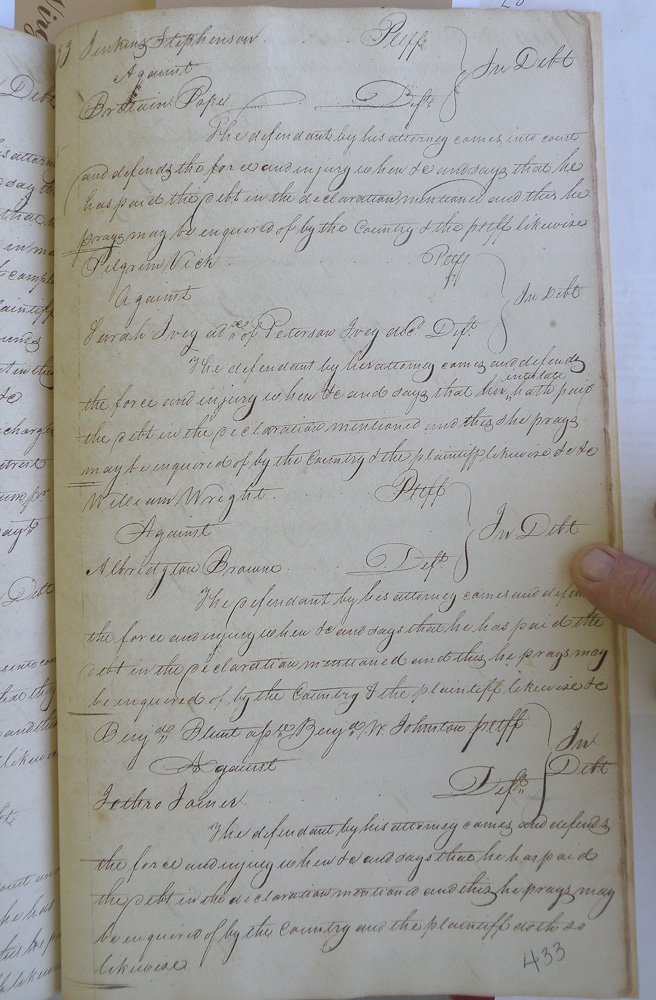 Jenkins Stephenson Pltff
Against In Debt
Brittain Pope Deft
The defendant by his attorney comes into court
and defends the force and injury when &c and says that he
has paid the debt in the declaration mentioned and this he
prays may be enquired of by the Country & the pltff likewise
Pilgrim Vick Pltff
Against In Debt
Sarah Ivey adx of Peterson Ivey decd Deft
The defendant by her attorney comes and defends
the force and injury when &c and says that her intestate hath paid
the debt in the declaration mentioned and this she prays
may be enquired of by the Country & the plaintiff likewise &c &c
William Wright Pltff
Against In Debt
Albridgton Browne Deft
The defendant by his attorney comes and
the force and injury when &c and says that he has paid the
debt in the declaration mentioned and this he prays may
be enquired of by the Country & the plaintiff likewise &c
Benjn Blunt Benjn W. Johnston pltff
Against In Debt
Jethro Joiner Deft
The defendant by his attorney comes and defends
the force and injury when &c and says that he has paid
the debt in the declaration mentioned and this he prays may
be enquired of by the Country and the plaintiff doth so
likewise
433